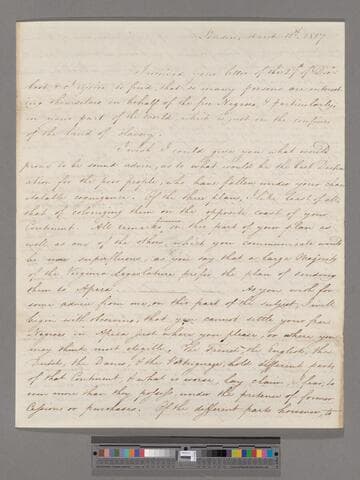 London, March 18th, 1817
I received your letter of the 27th of Decr
last & I rejoice to find, that so many Persons are interest-
ing themselves in behalf of the free Negroes, & particularly,
in your part of the world which is just on the confines
of the Land of Slavery.
I wish I could give you what would
prove to be sound advice, as to what would be the best Destin-
ation for the poor people, who have fallen under your chari-
table cognizance. Of the three plans, I like least of all
that of colonizing them on the opposite coast of your
Continent. All remarks, however, on this part of your plan as
well as one of the others, which you communicate would
be now superfluous, as you say that a large Majority
of the Virginia Legislature prefer the plan of sending
them to Africa.
As you wish for
some advice from me, on this part of the subject, I will
begin with observing, that you cannot settle your free
Negroes in Africa just where you please, or where you
may think most eligible. The French, the English, the
Dutch, the Danes, & the Portuguese, hold different parts
of that Continent, & what is worse, lay claim, I fear, to
even more than they possess under the pretence of former
Cessions or purchases. Of the different parts however, to